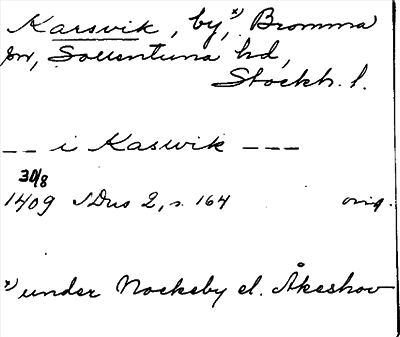 Karsvik, by,ˣ⁾ Bromma
sn, Sollentuna hd,
Stockh. l.
-- i Kaswik ---
30/8
1409 SDns 2, s. 164 orig.
ˣ⁾ under Nockeby el. Åkeshov